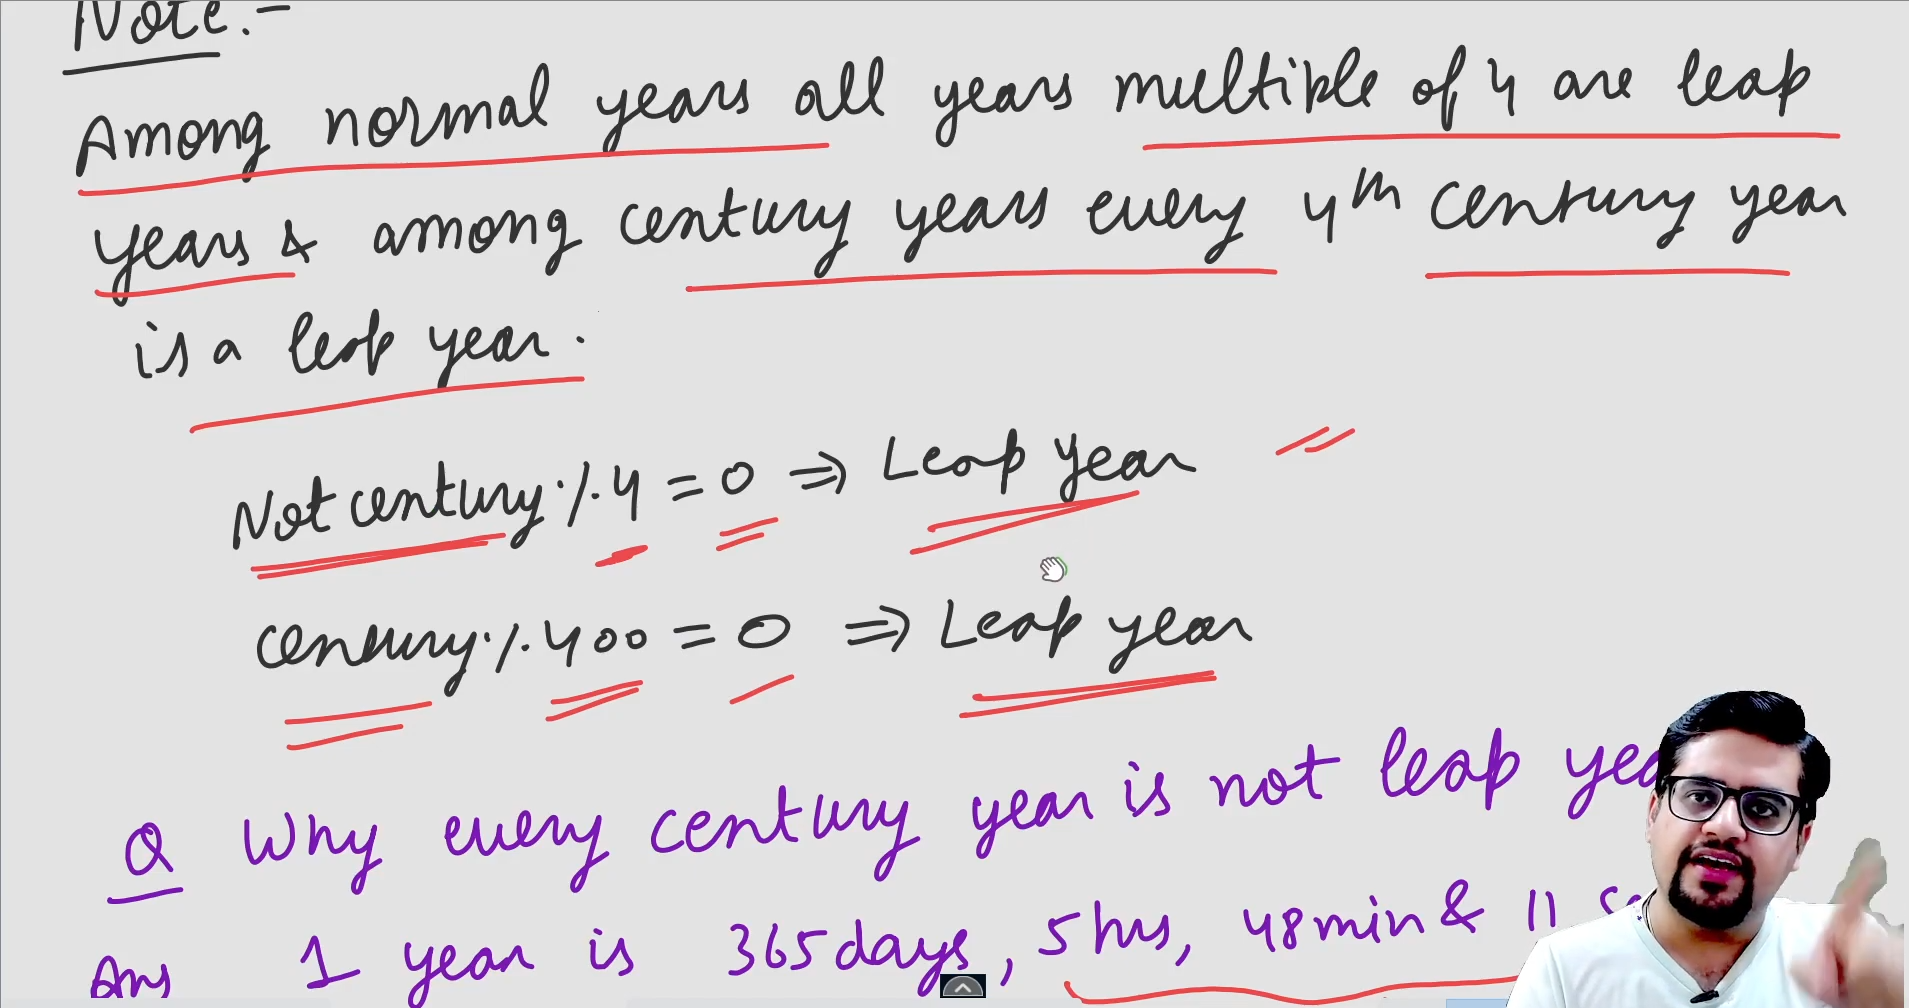 Note:-
Among normal years all years multiple of 4 are leap
years & among century years every 4th century year
is a leap year.
Not century % 4 = 0 ⇒ Leap year
century % 400 = 0 ⇒ Leap year
Q Why every century year is not leap
Ans 1 year is 365 days, 5 hrs, 48 min & 11